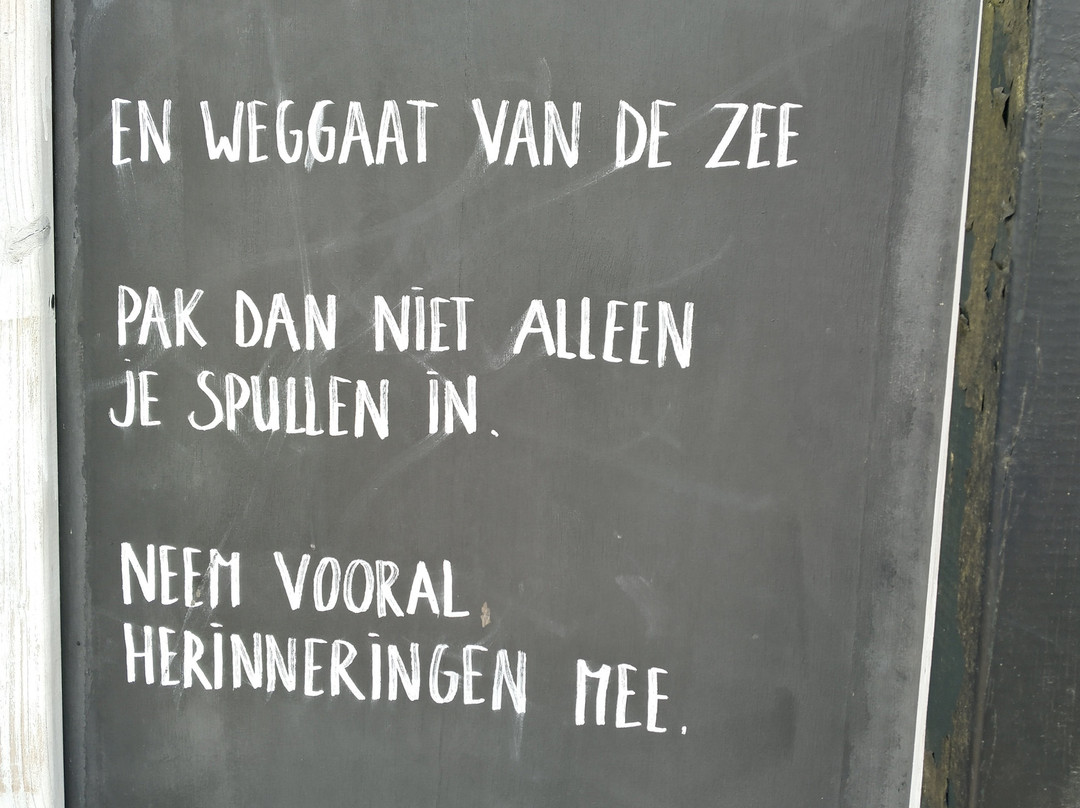 EN WEGGAAT VAN DE ZEE
PAK DAN NIET ALLEEN
JE SPULLEN IN.
NEEM VOORAL
HERINNERINGEN MEE.